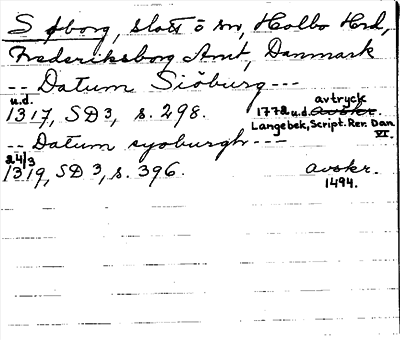 Søborg, slott o sn, Holbo Hrd,
Frederiksborg Amt, Danmark
-- Datum Siöburg ---
u.d.
1317, SD3, s. 298. avtryck
1772 u.d. Avskr.
Langebek, Script. Rer. Dan
VI.
-- Datum syoburgh ---
24/3
1319, SD 3, s. 396. avskr.
1494.